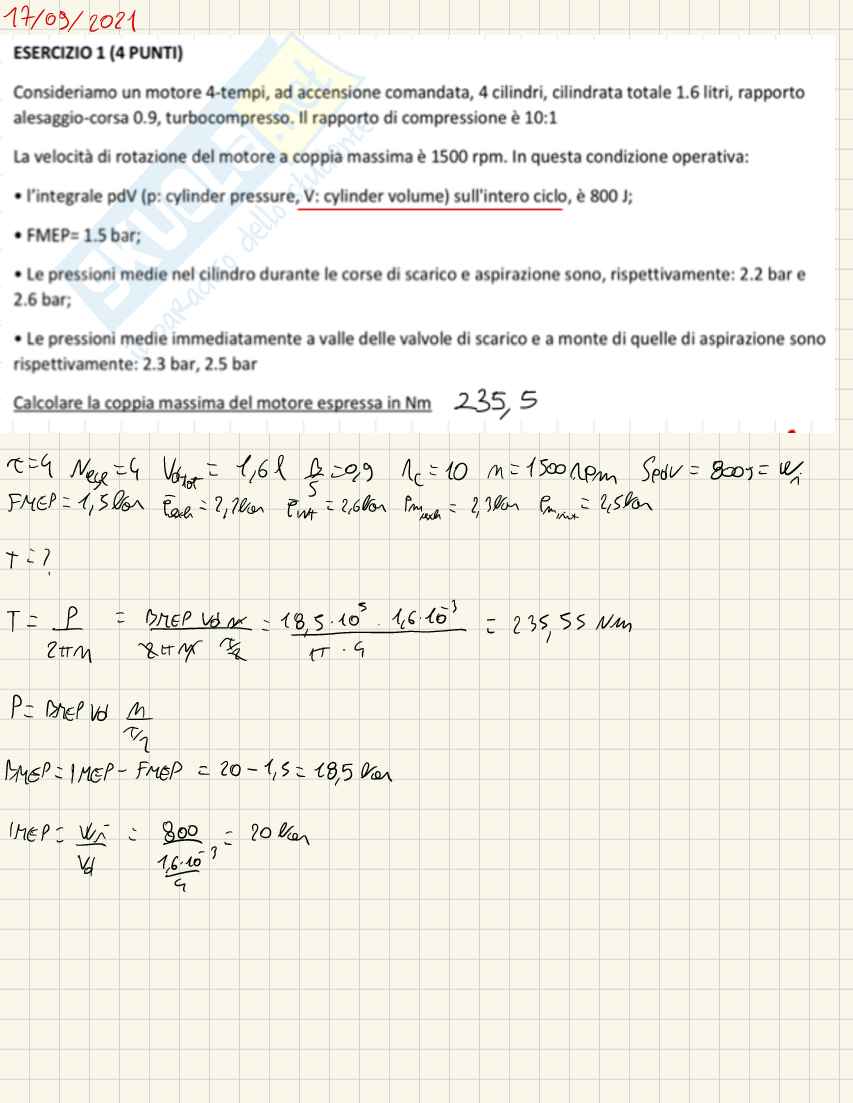 17/09/2021
ESERCIZIO 1 (4 PUNTI)
Consideriamo un motore 4-tempi, ad accensione comandata, 4 cilindri, cilindrata totale 1.6 litri, rapporto
alesaggio-corsa 0.9, turbocompresso. Il rapporto di compressione è 10:1
La velocità di rotazione del motore a coppia massima è 1500 rpm. In questa condizione operativa:
• l'integrale pdV (p: cylinder pressure, V: cylinder volume) sull'intero ciclo, è 800 J;
• FMEP= 1.5 bar;
• Le pressioni medie nel cilindro durante le corse di scarico e aspirazione sono, rispettivamente: 2.2 bar e
2.6 bar;
• Le pressioni medie immediatamente a valle delle valvole di scarico e a monte di quelle di aspirazione sono
rispettivamente: 2.3 bar, 2.5 bar
Calcolare la coppia massima del motore espressa in Nm 235,5
τ=4 Vd tot = 1,6 l B/S =0,9 rc = 10 n = 1500 rpm ∫pdV = 800 J = Wi
FMEP = 1,5 bar = 2,2 bar = 2,6 bar = 2,3 bar = 2,5 bar
T = ?
T = P / 2πn = BMEP Vd n / 2πn τ/2 = 18,5·10^5 · 1,6·10^-3 / π · 4 = 235,55 Nm
P = BMEP Vd n / τ/2
BMEP = IMEP - FMEP = 20 - 1,5 = 18,5 bar
IMEP = Wi / Vd = 800 / 1,6·10^-3 / 4 = 20 bar